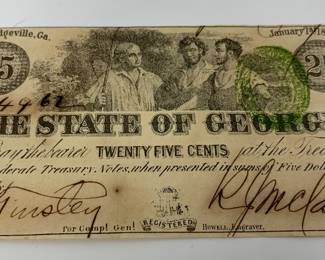 dgeville, Ga. January 1st 18
25 25
4462
HE STATE OF GEORG
Pay the bearer TWENTY FIVE CENTS at the Trea
derate Treasury Notes, when presented in sums of Five Dol
Tinsley
REGISTERED
for Comp! Gen! Howell, Engraver.